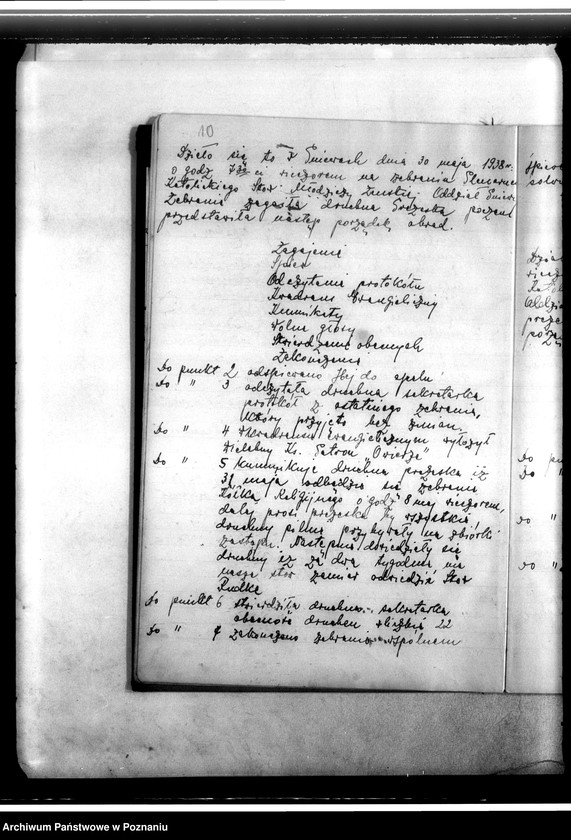 10
Działo się to w Gniewach dnia 30 maja 1938 r.
o godz. 7 30 ej wieczorem na zebraniu Plenarnem
Katolickiego Stow. Młodzieży Żeńskiej Oddział Gniew
Zebranie zagaiła druhna prezeska poczem
przedstawiła następ. porządek obrad.
Zagajenie
Śpiew
Odczytanie protokółu
Kwadrans Ewangeliczny
Komunikaty
Wolne głosy
Stwierdzenie obecnych
Zakończenie
Do punkt 2 odśpiewano Hej do apelu
Do " 3 odczytała druhna sekretarka
protokół z ostatniego zebrania,
który przyjęto bez zmian.
Do " 4 W kwadransie Ewangelicznym wyłożył
Wielebny Ks. Patron
Do " 5 komunikuje druhna prezeska iż
31 maja odbędzie się zebranie
Kółka Religijnego o godz 8 mej wieczorem,
dalej prosi prezeska by wszystkie
druhny pilnie przybywały na zbiórki
zastępu. Następnie dowiedziały się
druhny iż za dwa tygodnie ma
nasze stow. zamiar odwiedzić Stow
Do punkt 6 stwierdziła druhna sekretarka
obecność druhen w liczbie 22
Do " 7 zakończono zebranie wspólnem
Archiwum Państwowe w Poznaniu